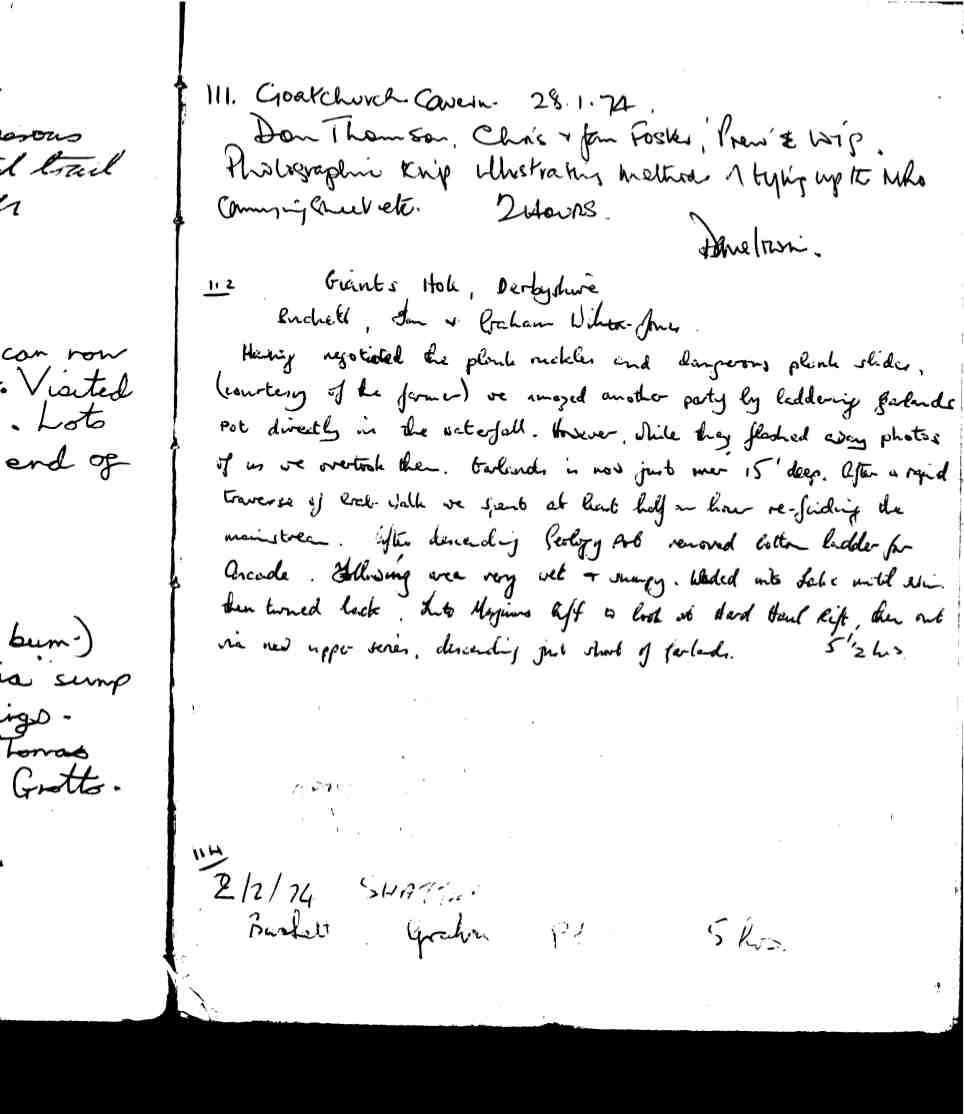 erous
d trail
can now
. Visited
. Lots
end of
bum.)
ia sump
igs.
Tomas
Grotto.
111. Goatchurch Cavern. 28.1.74.
Don Thomson, Chris + Jan Foster, 'Prew' & Wig.
Photographic trip illustrating methods of tying up the MRO
Carrying Sheet etc. 2 Hours.
Dave Irwin.
112 Giants Hole, Derbyshire
Buckett, Jan & Graham Wilton-Jones.
Having negotiated the plank ruckles and dangerous plank slides,
(courtesy of the farmer) we amazed another party by laddering Garlands
Pot directly in the waterfall. However, while they flashed away photos
of us we overtook them. Garlands is now just over 15' deep. After a rapid
traverse of crab-walk we spent at least half an hour re-finding the
mainstream. After descending Geology Pot removed bottom ladder for
Arcade. Following area very wet & sumpy. Waded into lake until
then turned back. Into Maginns Rift to look at Hard Haul Rift, then out
via new upper series, descending just short of Garlands. 5 1/2 hrs.
114
2/2/74
Buckett Graham 5 hrs.